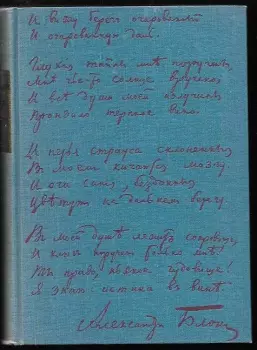 И вижу берег очарованный
И очарованную даль.
Глухие тайны мне поручены,
Мне чьё-то солнце вручено,
И все души моей излучины
Пронзило терпкое вино.
И перья страуса склоненные
В моём качаются мозгу,
И очи синие бездонные
Цветут на дальнем берегу.
В моей душе лежит сокровище,
И ключ поручен только мне!
Ты право, пьяное чудовище!
Я знаю: истина в вине.
Александр Блок